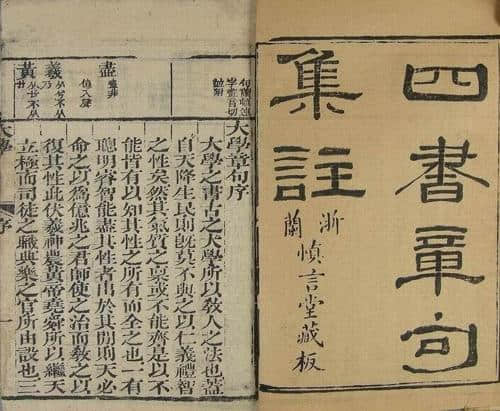 四書章句
集註
浙
蘭
慎言堂藏板
盡
羲
黃
大學章句序
大學之書古之大學所以教人之法也蓋
自天降生民則既莫不與之以仁義禮智
之性矣然其氣質之稟或不能齊是以不
能皆有以知其性之所有而全之也一有
聰明睿智能盡其性者出於其間則天必
命之以為億兆之君師使之治而教之以
復其性此伏羲神農黃帝堯舜所以繼天
立極而司徒之職典樂之官所由設也三
大學
序
一